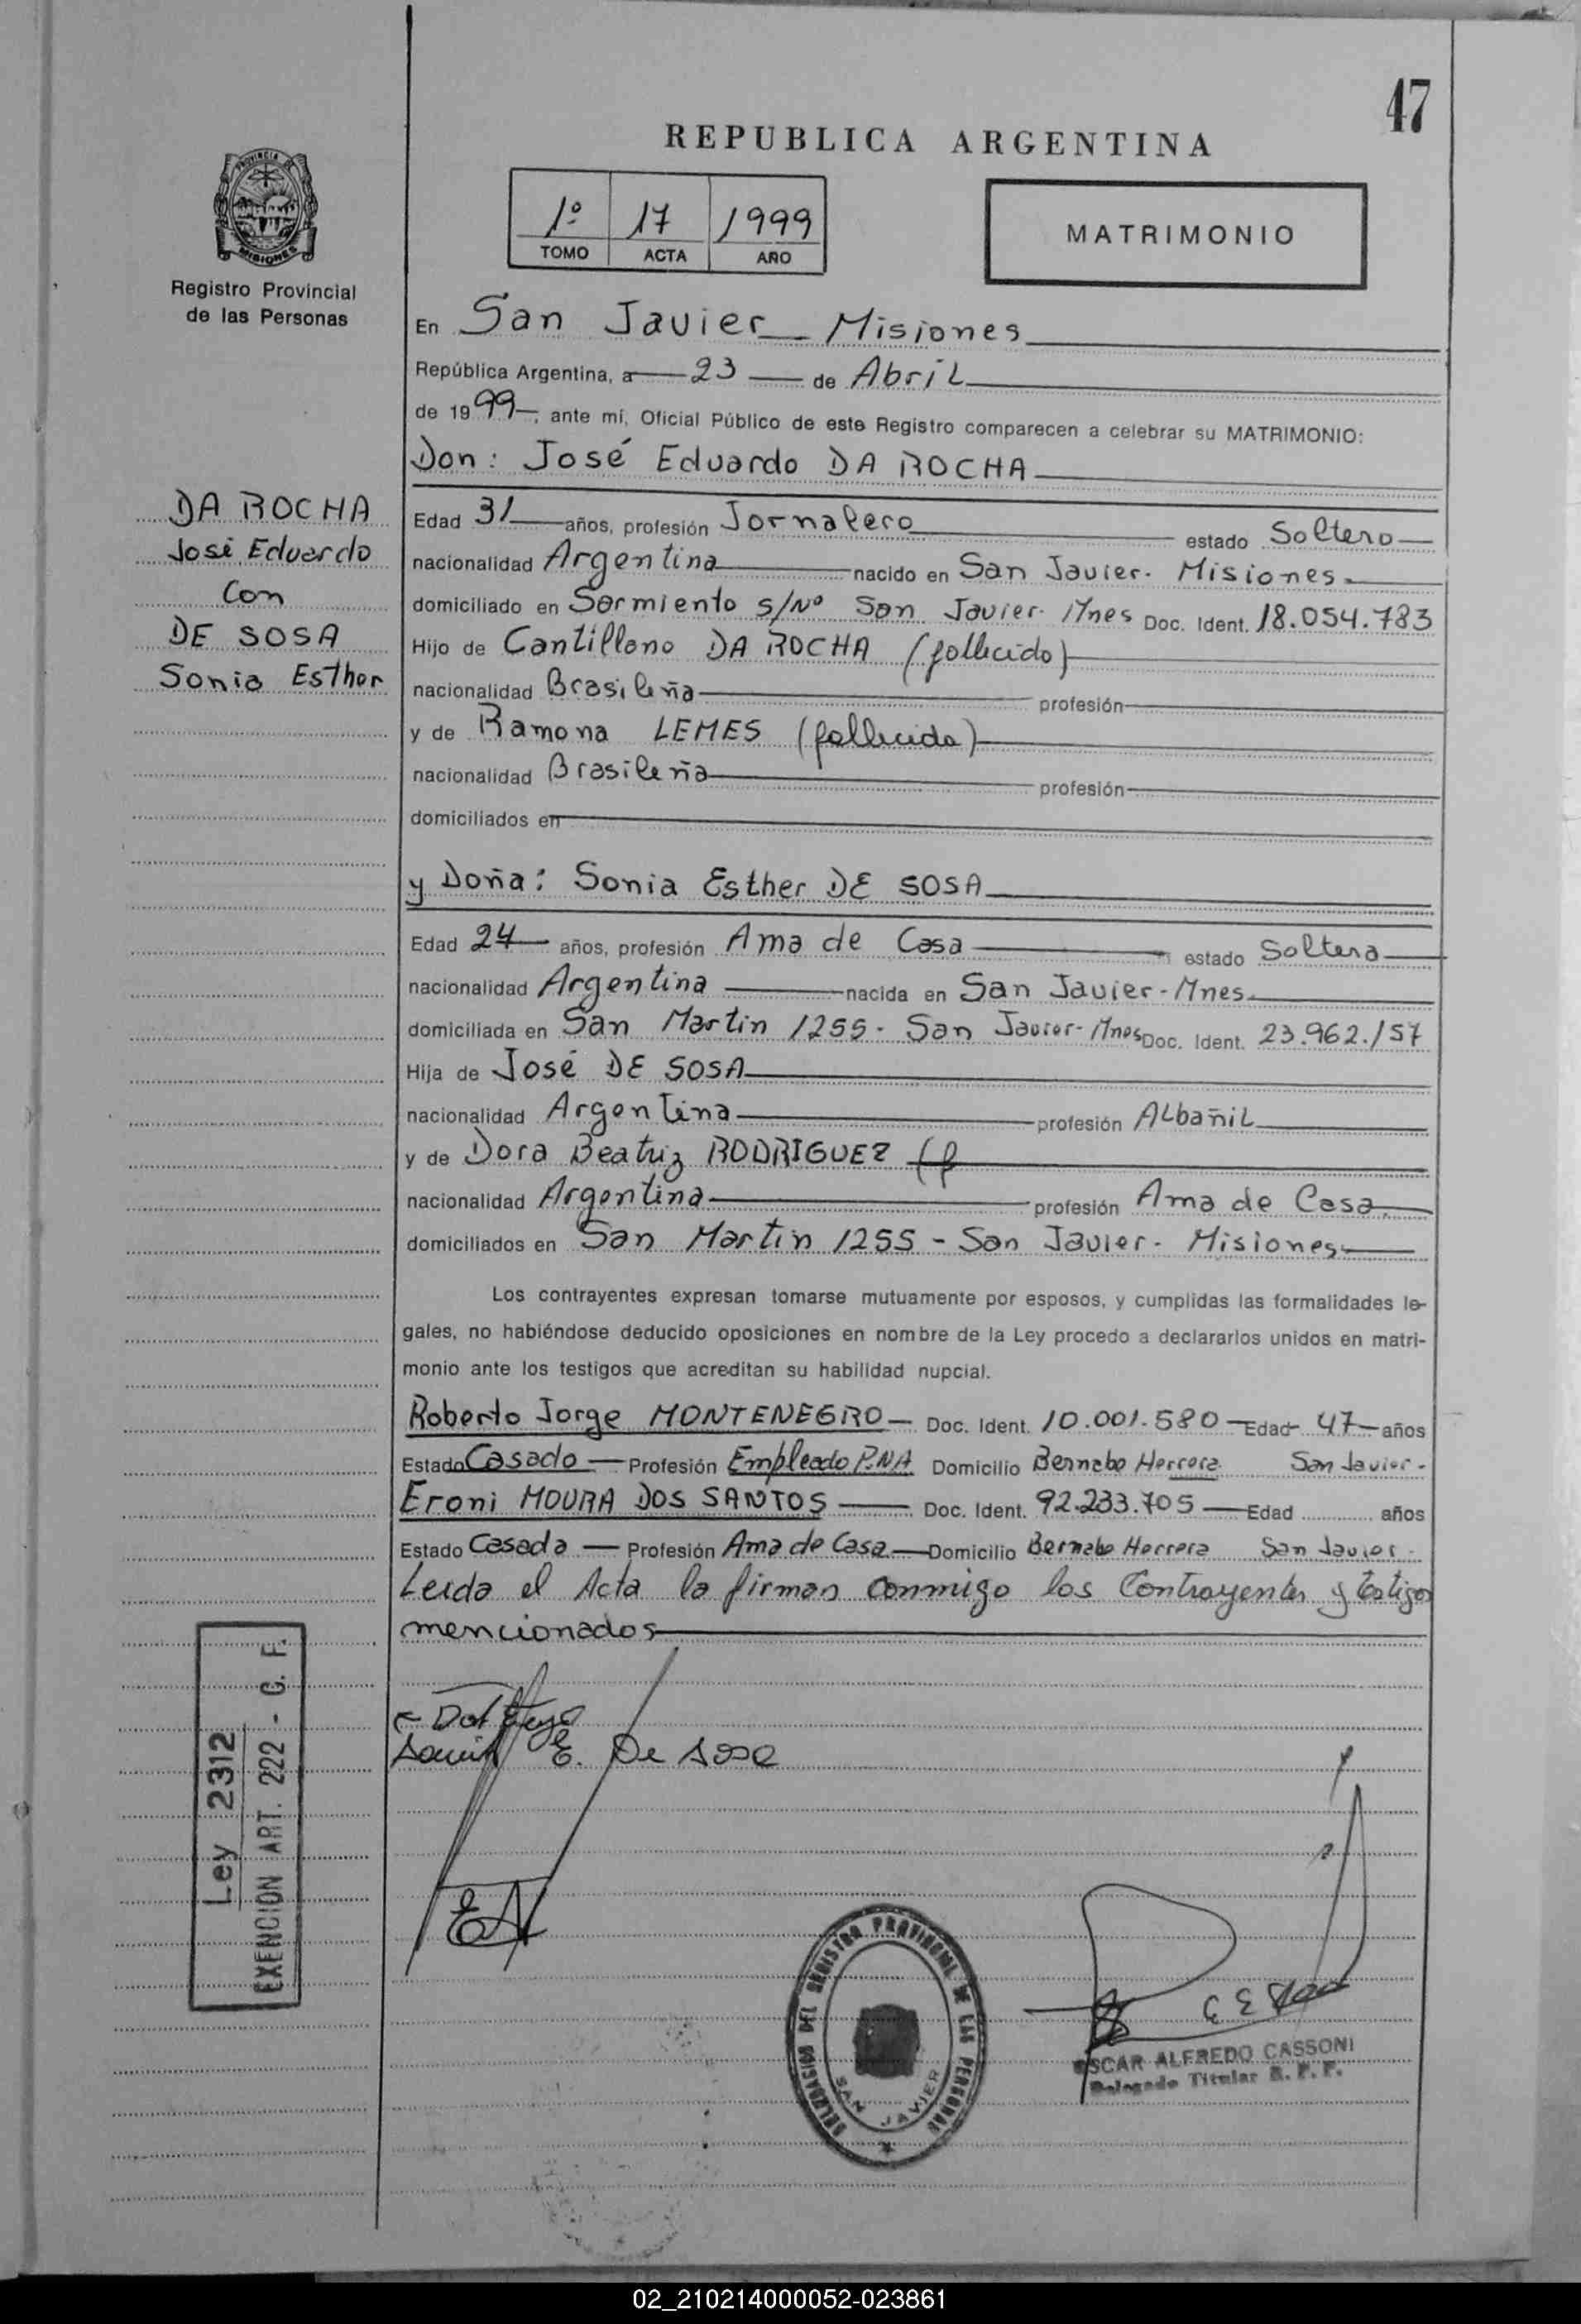 47
REPUBLICA ARGENTINA
1º 17 1999
TOMO ACTA AÑO
MATRIMONIO
PROVINCIA DE
MISIONES
Registro Provincial
de las Personas
En San Javier Misiones
República Argentina, a 23 de Abril
de 1999, ante mí, Oficial Público de este Registro comparecen a celebrar su MATRIMONIO:
Don: José Eduardo DA ROCHA
DA ROCHA
José Eduardo
Con
DE SOSA
Sonia Esther
Edad 31 años, profesión Jornalero estado Soltero
nacionalidad Argentina nacido en San Javier. Misiones
domiciliado en Sarmiento s/Nº San Javier Mnes Doc. Ident. 18.054.783
Hijo de Cantillano DA ROCHA (fallecido)
nacionalidad Brasileña profesión
y de Ramona LEMES (fallecida)
nacionalidad Brasileña profesión
domiciliados en
y Doña: Sonia Esther DE SOSA
Edad 24 años, profesión Ama de Casa estado Soltera
nacionalidad Argentina nacida en San Javier-Mnes
domiciliada en San Martin 1255- San Javier-Mnes Doc. Ident. 23.962.157
Hija de José DE SOSA
nacionalidad Argentina profesión Albañil
y de Dora Beatriz RODRIGUEZ (f
nacionalidad Argentina profesión Ama de Casa
domiciliados en San Martin 1255 - San Javier- Misiones
Los contrayentes expresan tomarse mutuamente por esposos, y cumplidas las formalidades le-
gales, no habiéndose deducido oposiciones en nombre de la Ley procedo a declararlos unidos en matri-
monio ante los testigos que acreditan su habilidad nupcial.
Roberto Jorge MONTENEGRO Doc. Ident. 10.001.580 Edad 47 años
Estado Casado Profesión Empleado P.NA Domicilio Bernabe Herrera San Javier-
Eroni MOURA DOS SANTOS Doc. Ident. 92.233.705 Edad años
Estado Casada Profesión Ama de Casa Domicilio Bernabe Herrera San Javier-
Leida el Acta la firman conmigo los Contrayentes y testigos
mencionados
E. De Sosa
Ley 2312
EXENCION ART. 222 - C. F.
DELEGACION DEL REGISTRO PROVINCIAL DE LAS PERSONAS
SAN JAVIER
OSCAR ALFREDO CASSONI
Delegado Titular R. P. P.
02_210214000052-023861